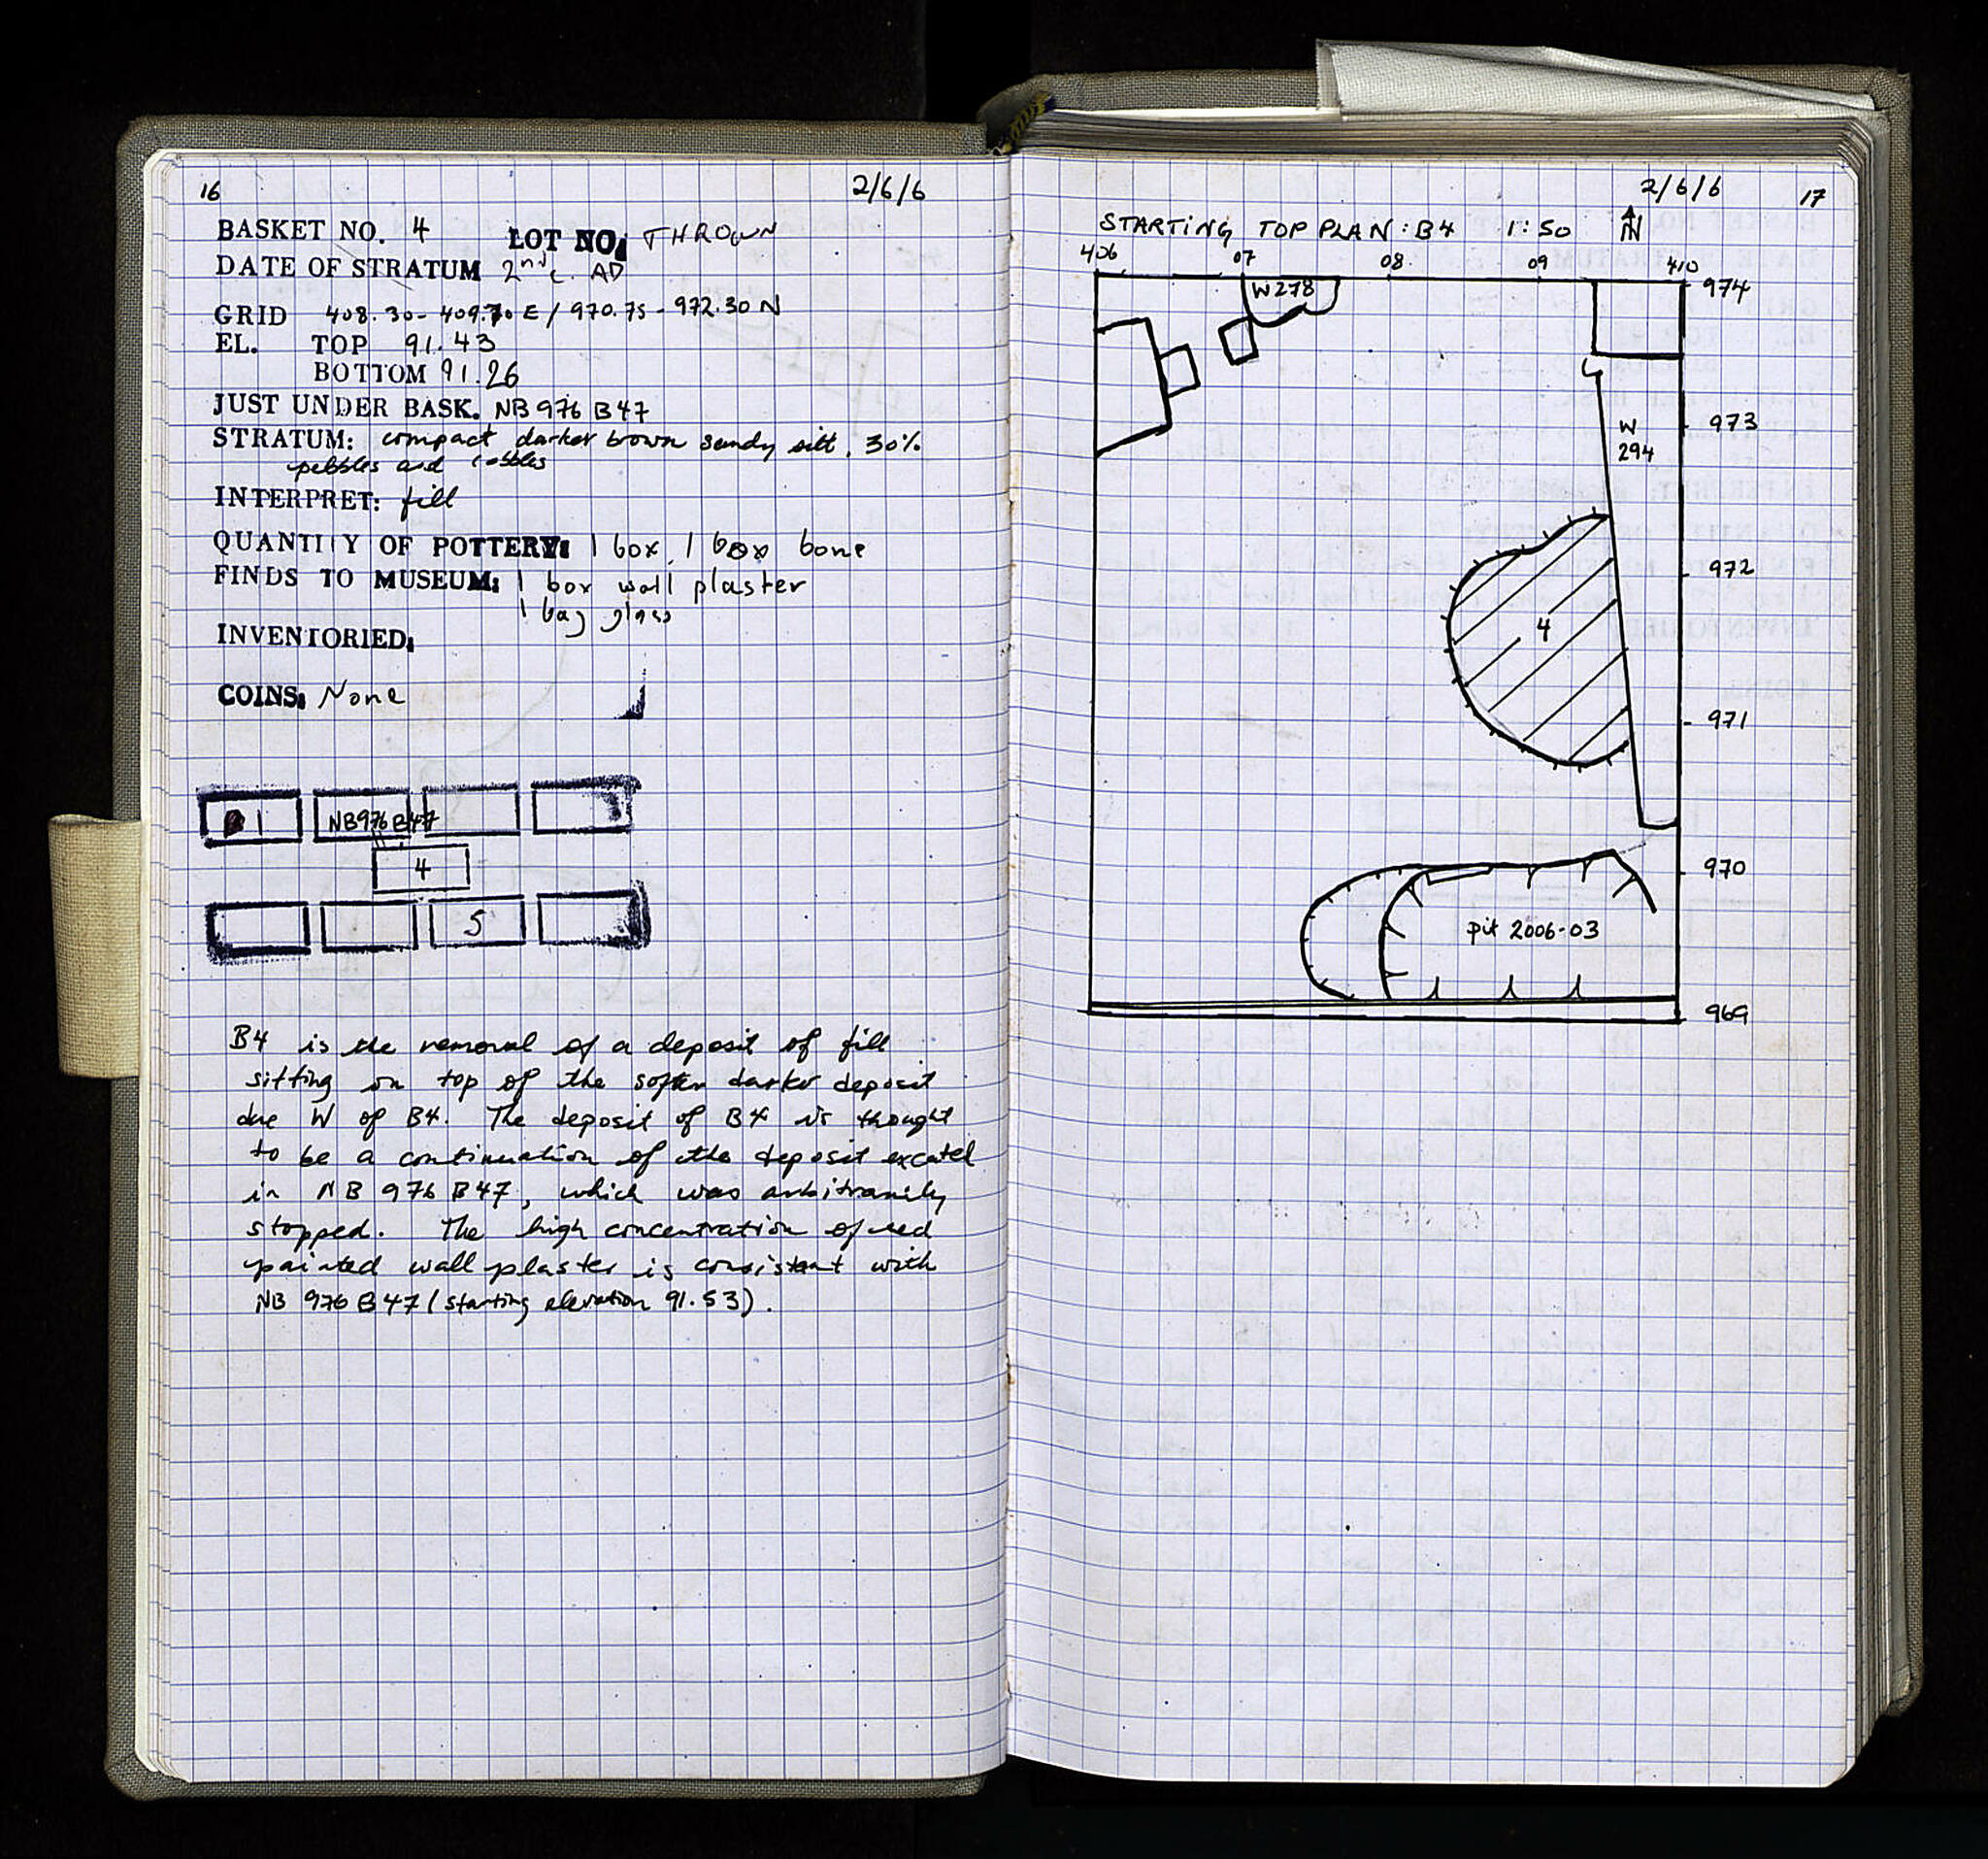 16
2/6/6
BASKET NO. 4 LOT NO: THROWN
DATE OF STRATUM 2nd c. AD
GRID 408.30-409.70 E / 970.75-972.30 N
EL. TOP 91.43
BOTTOM 91.26
JUST UNDER BASK. NB 976 B47
STRATUM: compact darker brown sandy silt, 30%
pebbles and cobbles
INTERPRET: fill
QUANTITY OF POTTERY: 1 box, 1 box bone
FINDS TO MUSEUM: 1 box wall plaster
1 bag glass
INVENTORIED:
COINS: None
1 NB976 B47
4
5
B4 is the removal of a deposit of fill
sitting on top of the softer darker deposit
due W of B4. The deposit of B4 is thought
to be a continuation of the deposit excatel
in NB 976 B47, which was arbitrarily
stopped. The high concentration of red
painted wall plaster is consistent with
NB 976 B47 (starting elevation 91.53).
2/6/6
17
STARTING TOP PLAN: B4 1:50 N
406 07 08 09 410
974
W278
973
W
294
972
4
971
970
pit 2006-03
969